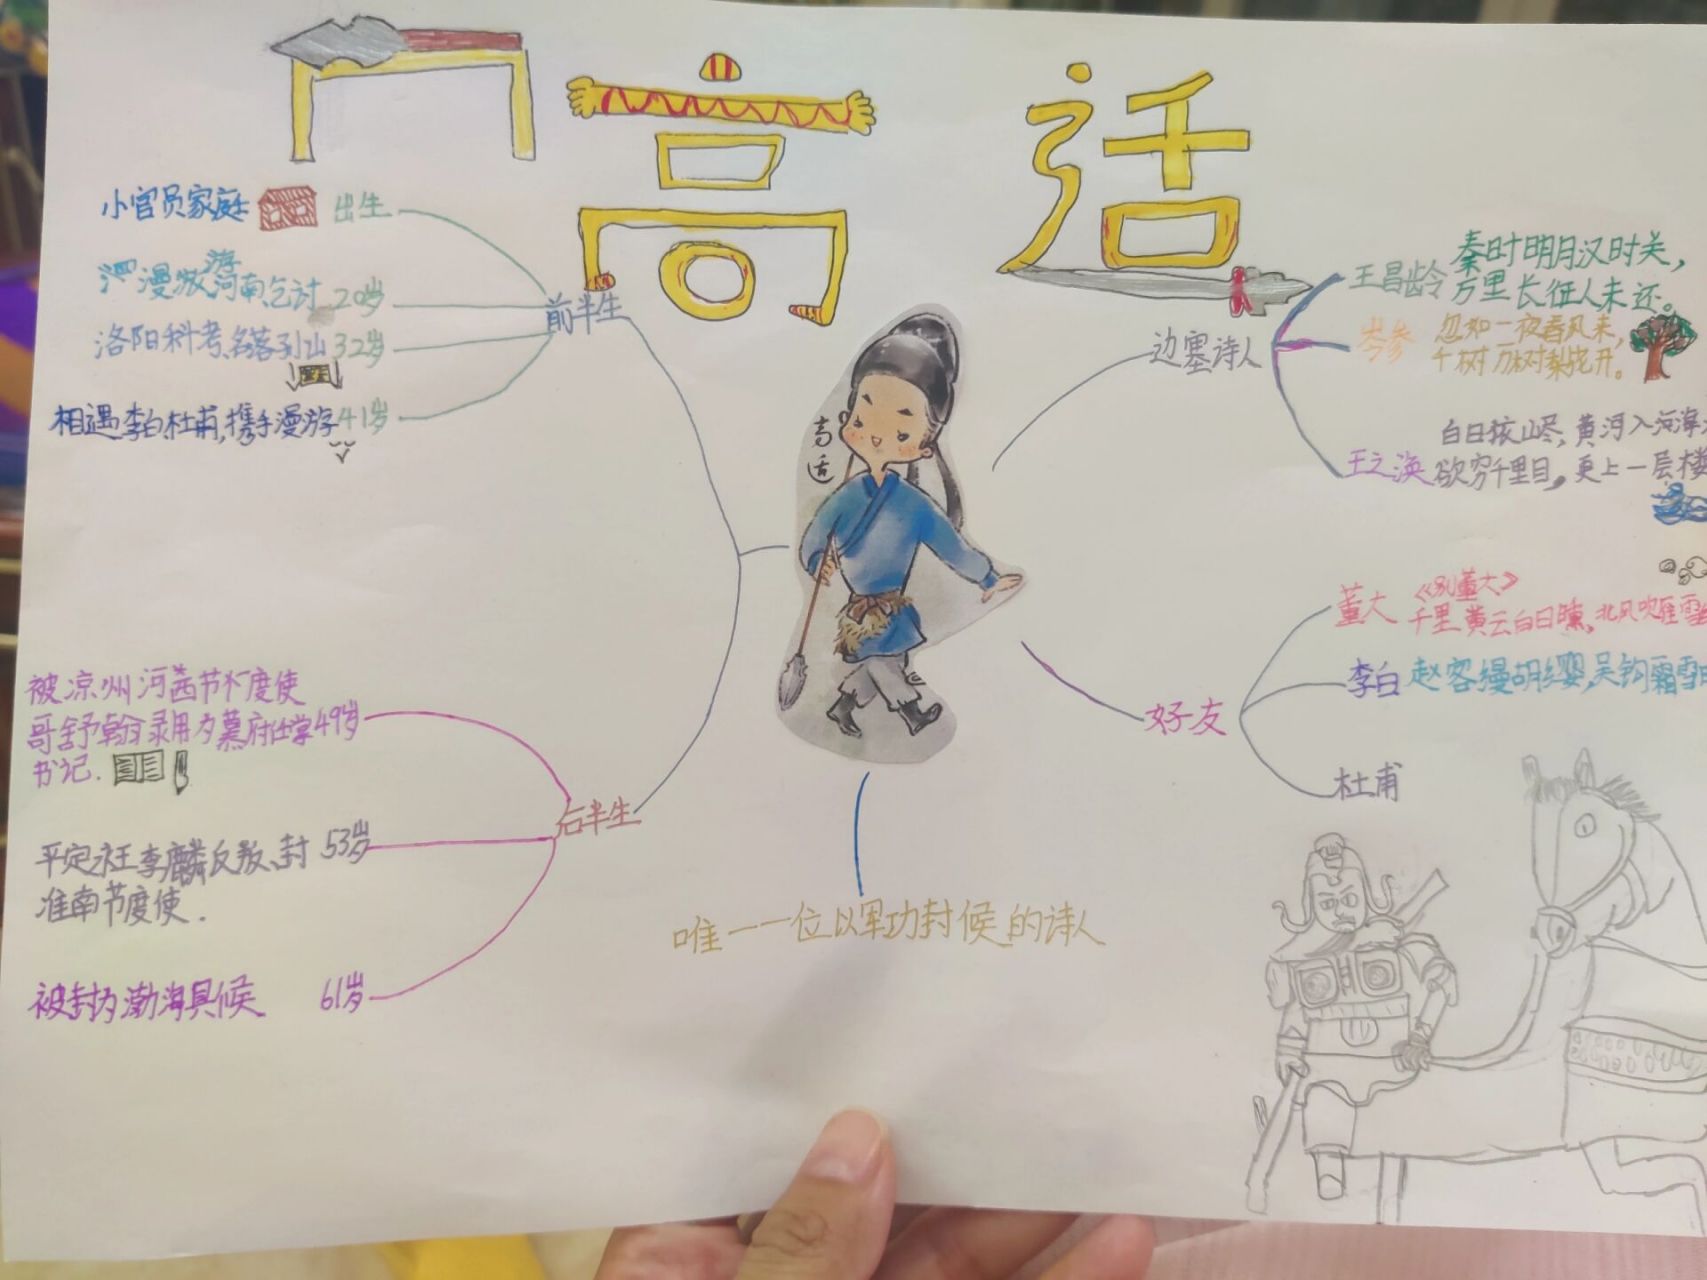 高适
小官员家庭 出生
漫游河南乞讨 20岁
洛阳科考、名落孙山 32岁
相遇李白、杜甫,携手漫游 41岁
前半生
高适
边塞诗人
王昌龄
秦时明月汉时关,
万里长征人未还。
岑参
忽如一夜春风来,
千树万树梨花开。
王之涣
白日依山尽,黄河入海
欲穷千里目,更上一层楼
董大
《别董大》
千里黄云白日曛,北风吹雁雪
李白 赵客缦胡缨,吴钩霜雪明
杜甫
好友
被凉州河西节度使
哥舒翰录用为幕府任掌 49岁
书记.
后半生
平定永王李麟反叛、封 53岁
淮南节度使.
被封为渤海县候 61岁
唯一一位以军功封候的诗人